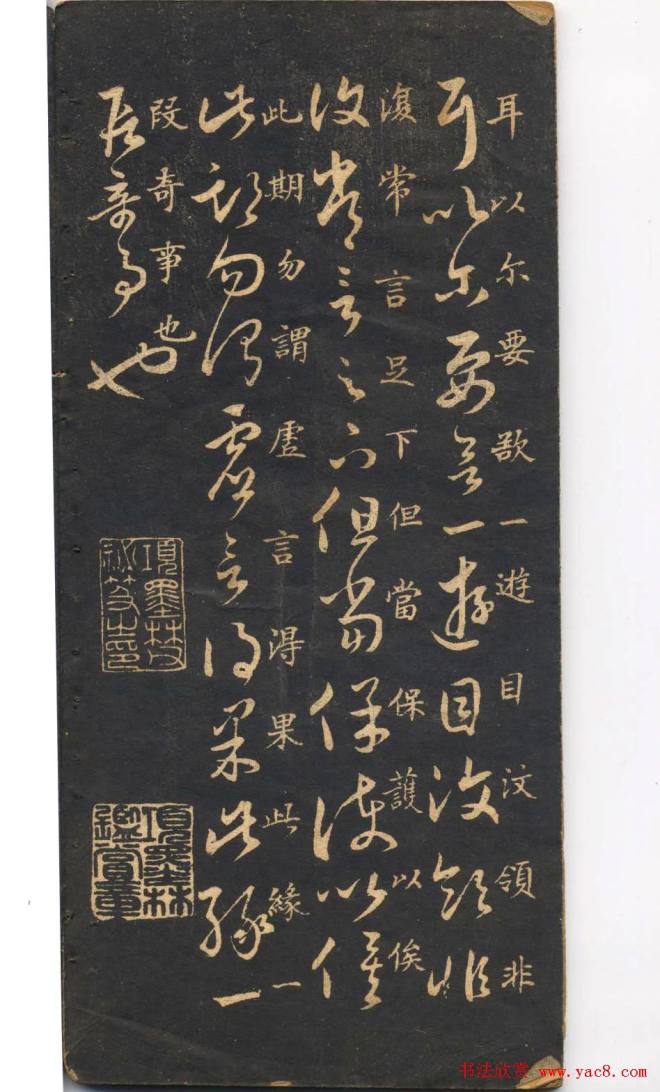 耳以尔要欲一遊目汶領非
耳以尔要欲一遊目汶領非
復常言足下但當保護以俟
復常言足下但當保護以俟
此期勿謂虛言得果此緣一
此期勿謂虛言得果此緣一
段奇事也
段奇事也
項墨林父
祕笈之印
項墨林
鑑賞章
书法欣赏 www.yac8.com